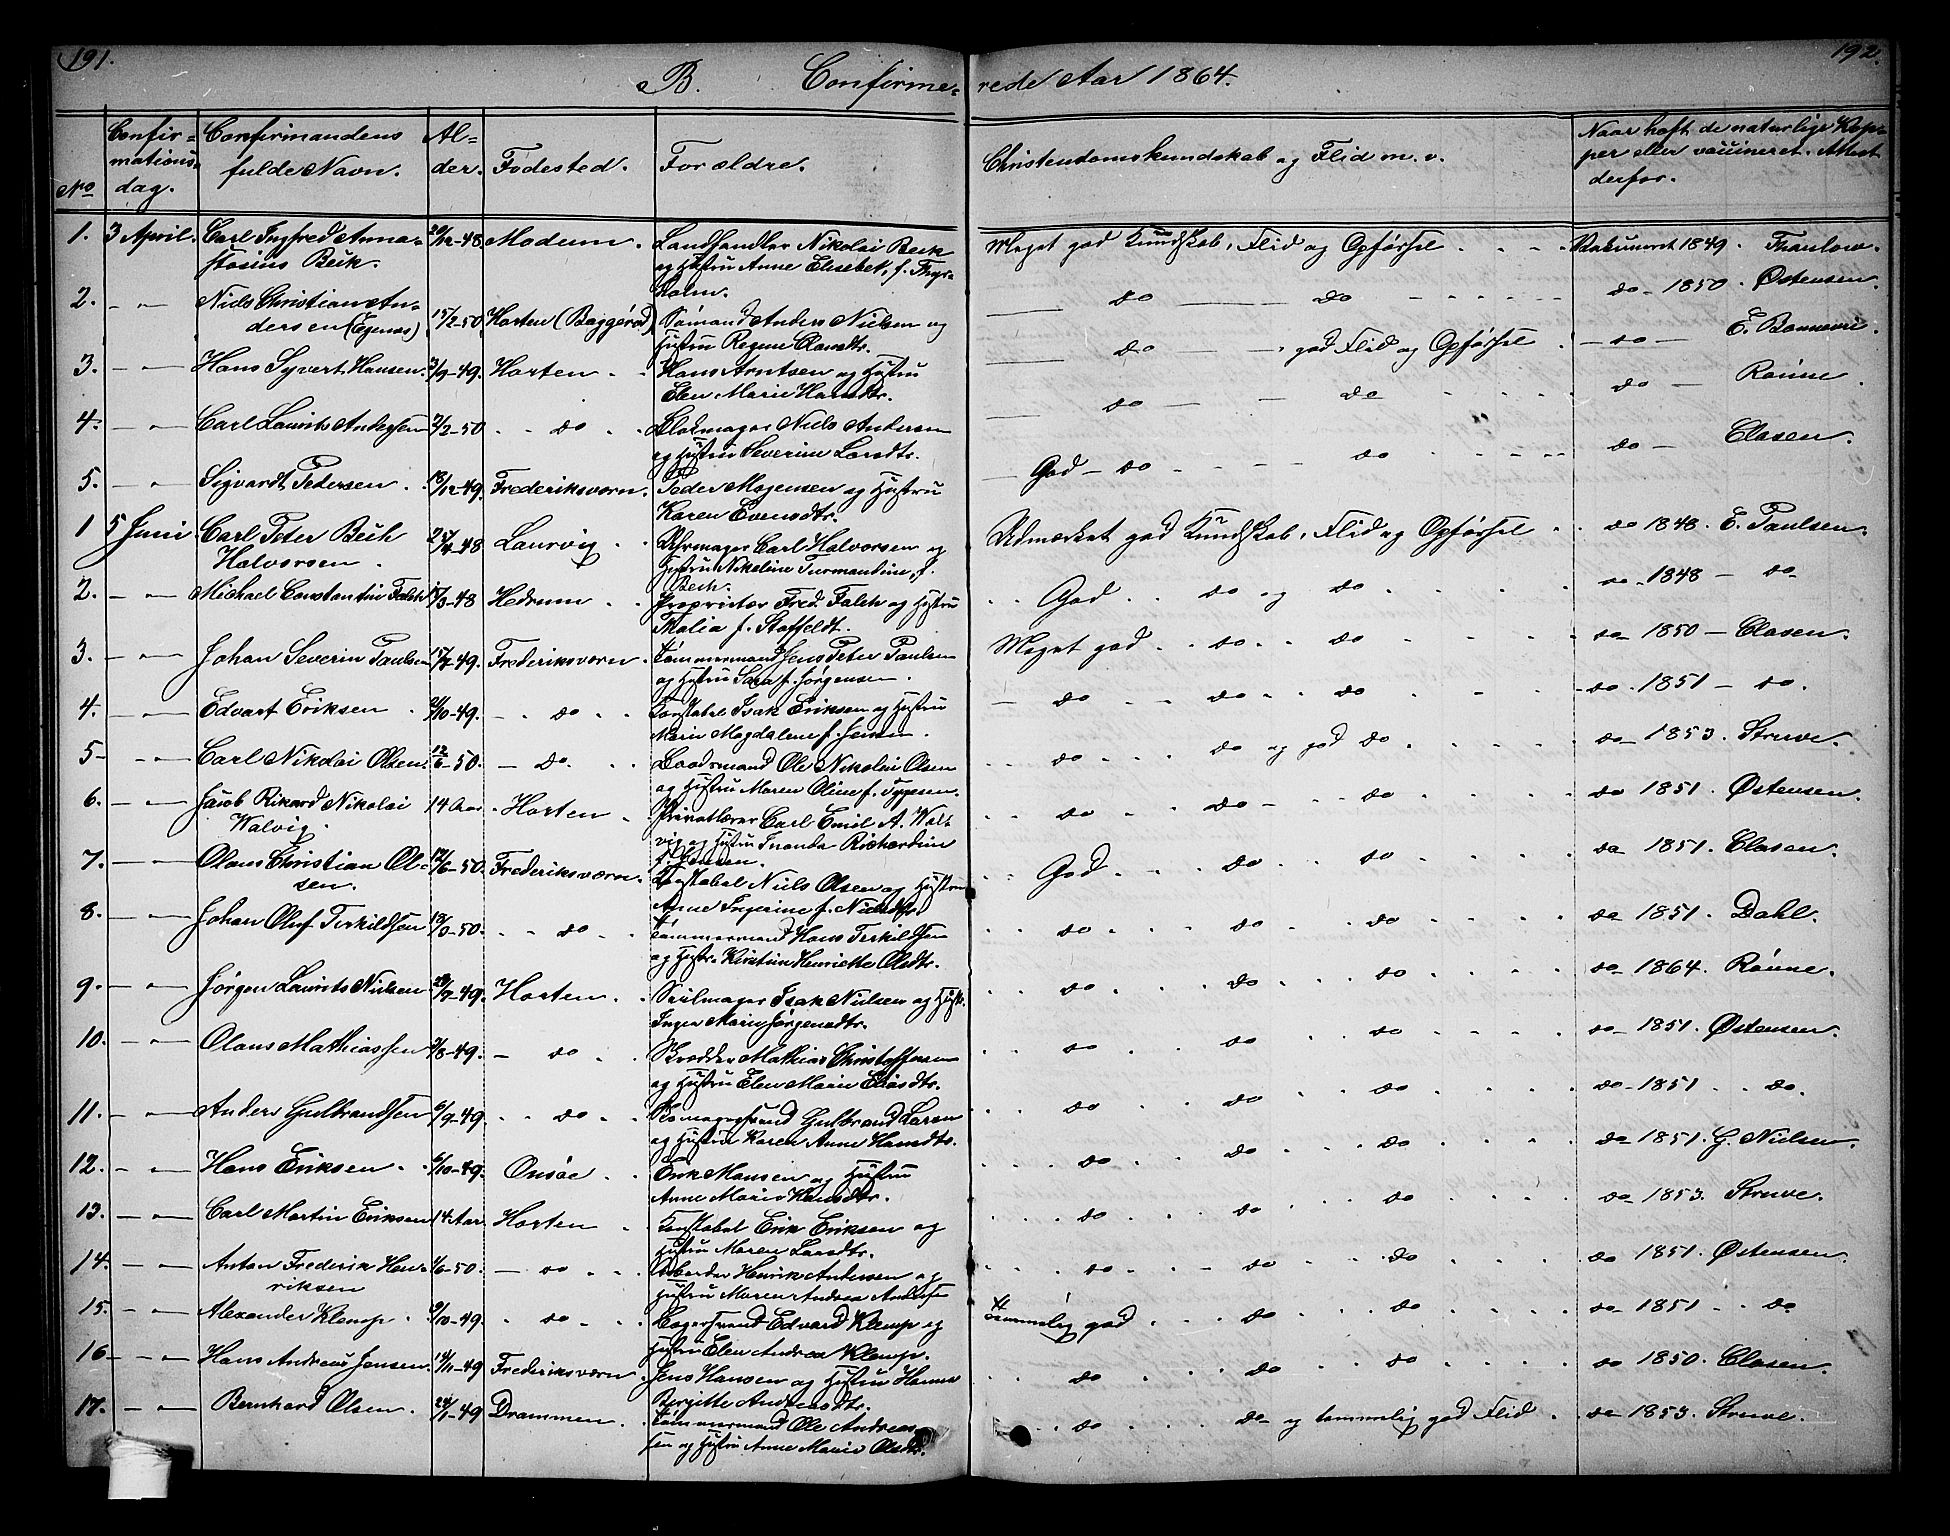 191.
192.
B. Confirme- rede Aar 1864.
No
Confir-
mations-
dag.
Confirmandens
fulde Navn.
Al-
der.
Fødested.
Forældre.
Christendomskundskab og Flid m. v.
Naar haft de naturlige Kop-
per eller vaccineret. Attest
derfor.
1. 3 April. Carl Ingfred Anna- 20/12-48 Modum. Landhandler Nikolai Beck Meget god Kundskab, Flid og Opførsel Vakcineret 1849. Thaulow.
stosius Beck. og Hustru Anne Elisebet, f. Thys-
holm.
2. — „ — Niels Christian An- 15/2-50 Horten (Baggerød) Sømand Anders Nielsen og do do do 1850. Østensen.
dersen (Egenæs) Hustru Regine Olansdtr.
3. — „ — Hans Syvert Hansen. 3/9-49. Horten. Hans Arntsen og Hustru do god Flid og Opførsel do E. Bonnevie.
Elen Marie Hansdtr.
4. — „ — Carl Laurits Andersen 7/2-50 do Blokmager Niels Andersen do do do Rønne.
og Hustru Severine Larsdtr.
5. — „ — Sigvardt Pedersen. 18/12-49. Frederiksværn. Peder Mogensen og Hustru God do do do Clasen.
Karen Evensdtr.
1 5 Juni Carl Peter Bech 25/4-48 Laurvig Uhrmager Carl Halvorsen og Udmærket god Kundskab, Flid og Opførsel do 1848. E. Paulsen.
Halvorsen. Hustru Nikoline Turmandine, f.
Bech.
2. — „ — Michael Constantin Falch 15/3-48 Hedrum Proprietær Fred. Falch og Hustru God do og do do 1848 — do
Thalia f. Staffeldt.
3. — „ — Johan Severin Paulsen 17/2-49. Frederiksværn. Tømmermand Jens Peter Paulsen Meget god do do do 1850 — Clasen.
og Hustru Sara f. Jørgensen.
4. — „ — Edvart Eriksen 2/10-49. do Konstabel Isak Eriksen og Hustru do do do do 1851 — do.
Marie Magdalene f. Jensen.
5 — „ — Carl Nikolai Olsen. 12/6-50. do. Loodsmand Ole Nikolai Olsen do do og god do do 1853. Struve.
og Hustru Maren Oline f. Typesen.
6. — „ — Jacob Rikard Nikolai 14 Aar Horten Privatlærer Carl Emil A. Wal- do do do do 1851. Østensen.
Walvig. vig og Hustru Amanda Richardine
7. — „ — Olaus Christian Ol- 12/6-50. Frederiksværn. Konstabel Niels Olsen og Hustru God do do do 1851. Clasen.
sen. Anne Ingerine f. Nielsdtr.
8. — „ — Johan Oluf Terkildsen 13/3-50. do Tømmermand Hans Terkildsen do do do do 1851. Dahl.
og Hustr. Kirstine Henriette Olsdtr.
9. — „ — Jørgen Laurits Nielsen 28/7-49. Horten. Seilmager Isak Nielsen og Hustr. do do do do 1864. Rønne.
Inger Marie Jørgensdtr.
10. — „ — Olaus Mathiassen 3/8-49. do Snedker Mathias Christoffersen do do do do 1851. Østensen.
og Hustru Elen Marie Eliasdtr.
11. — „ — Anders Gulbrandsen 6/9-49. do Gulbrand Larsen do do do do 1851 do.
og Hustru Karen Anne Hansdtr.
12. — „ — Hans Eriksen. 6/10-49. Onsøe. Erik Hansen og Hustru do do do do 1851. G. Nielsen.
Anne Marie Hansdtr.
13. — „ — Carl Martin Eriksen 14 Aar. Horten Konstabel Erik Eriksen og do do do do 1853. Struve.
Hustru Maren Larsdtr.
14. — „ — Anton Frederik Hen- 1/6-50. do Arbeider Henrik Andersen og do do do do 1851. Østensen
riksen Hustru Maren Andrea Andersd.
15. — „ — Alexander Klemp. 9/10-49 do Edvard Klemp og Temmelig god do do do 1851 do
Hustru Elen Andrea Klemp.
16 — „ — Hans Andreas Jensen. 14/11-49 Frederiksværn. Jens Hansen og Hustru Hanne do do do do 1850. Clasen
Birgitte Andersdtr.
17. — „ — Bernhard Olsen. 24/1-49 Drammen. Tømmermand Ole Andreas- do do og temmelig god Flid do 1853. Struve.
sen og Hustru Anne Marie Olsdtr.